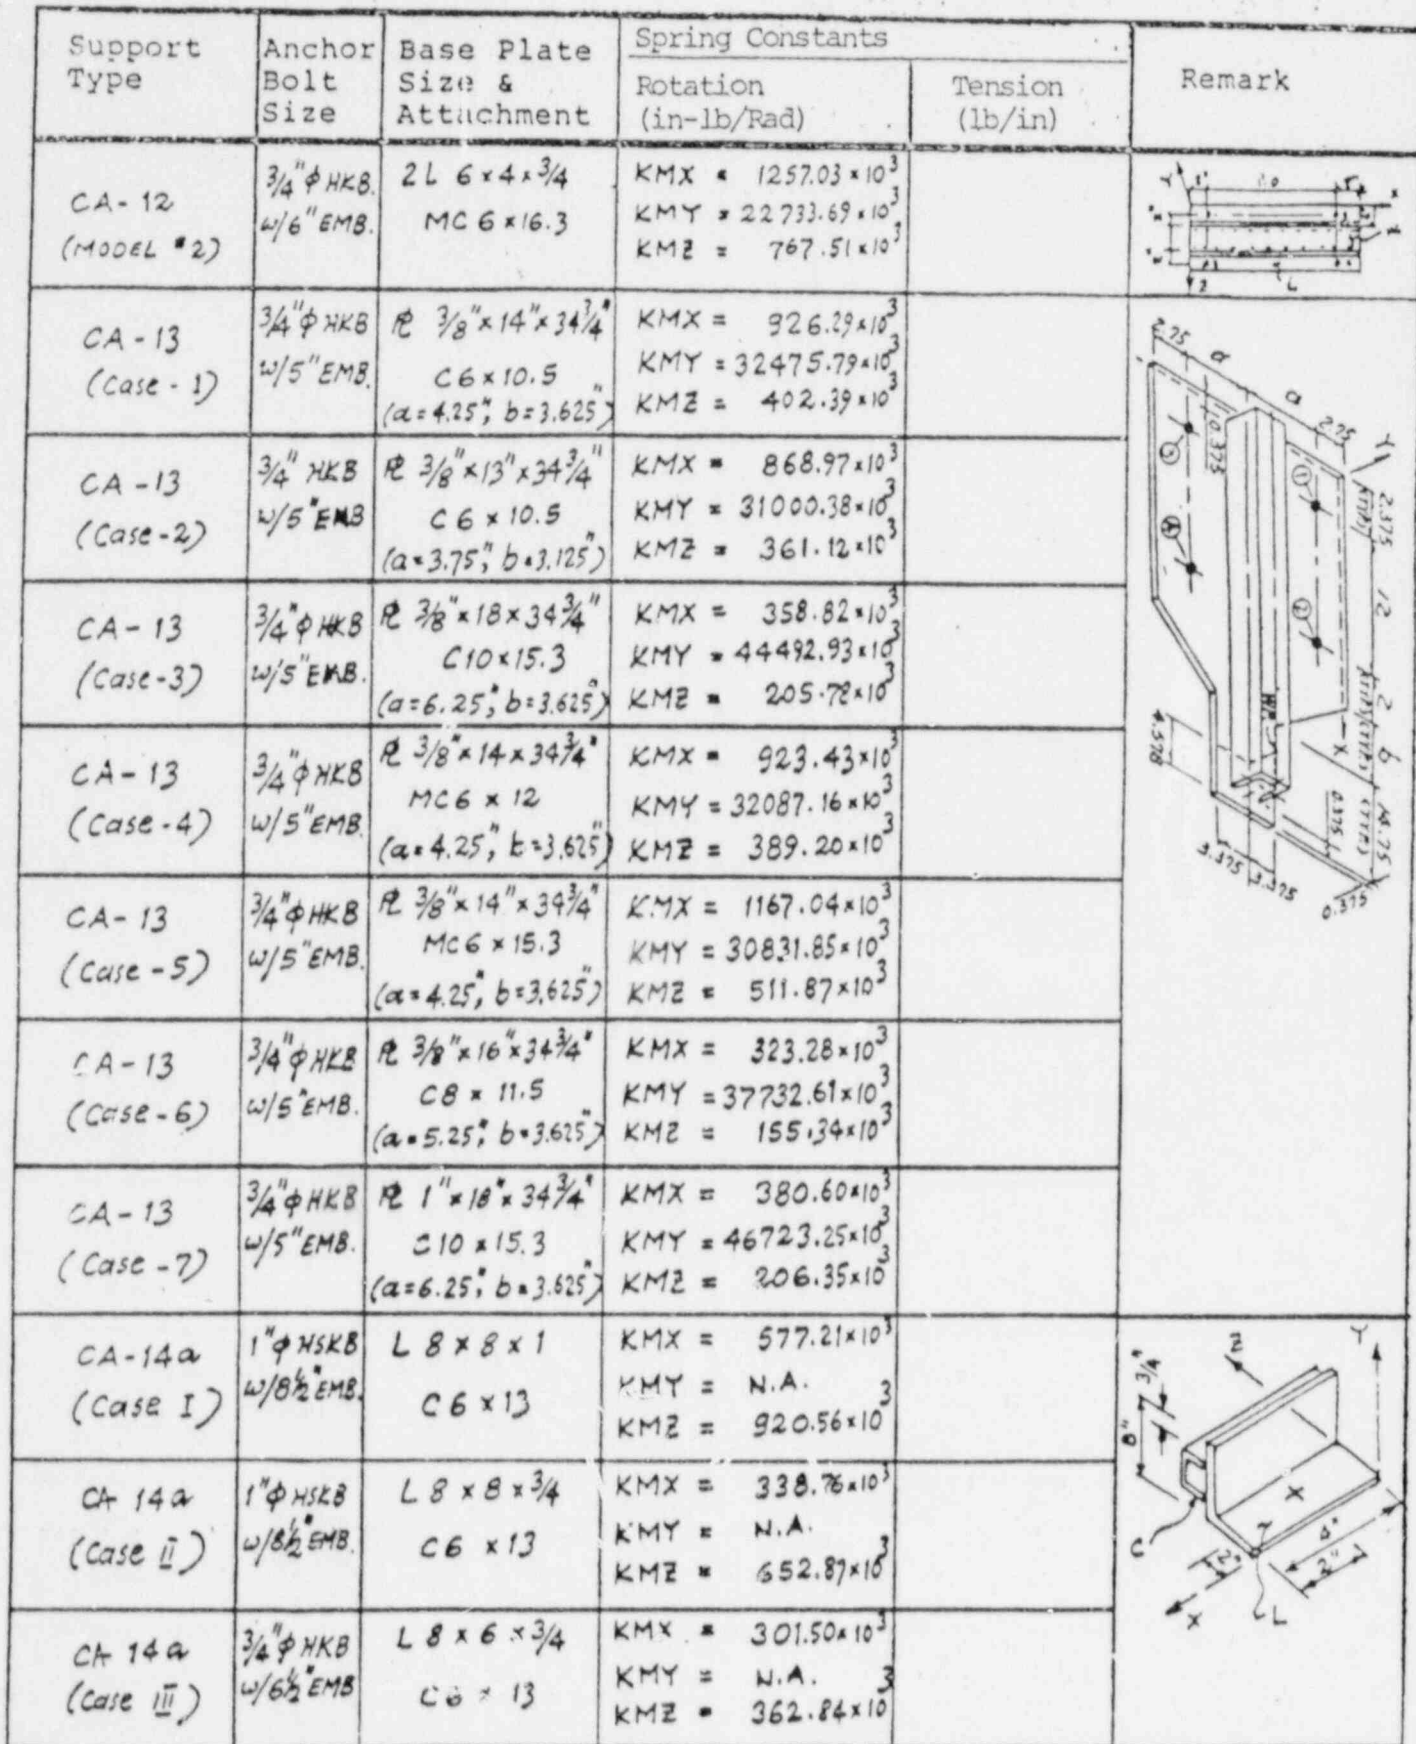 Support Type
Anchor Bolt Size
Base Plate Size & Attachment
Spring Constants
Rotation (in-lb/Rad)
Tension (lb/in)
Remark
CA-12 (MODEL #2)
3/4"φ HKB. w/6" EMB.
2L 6x4x3/4
MC 6x16.3
KMX = 1257.03x10³
KMY = 22733.69x10³
KMZ = 767.51x10³
CA-13 (Case-1)
3/4"φ HKB w/5" EMB.
PL 3/8"x14"x34 3/4"
C6x10.5
(a=4.25", b=3.625")
KMX = 926.29x10³
KMY = 32475.79x10³
KMZ = 402.39x10³
CA-13 (Case-2)
3/4" HKB w/5" EMB
PL 3/8"x13"x34 3/4"
C6x10.5
(a=3.75", b=3.125")
KMX = 868.97x10³
KMY = 31000.38x10³
KMZ = 361.12x10³
CA-13 (Case-3)
3/4"φ HKB w/5" EMB.
PL 3/8"x18x34 3/4"
C10x15.3
(a=6.25", b=3.625")
KMX = 358.82x10³
KMY = 44492.93x10³
KMZ = 205.78x10³
CA-13 (Case-4)
3/4"φ HKB w/5" EMB.
PL 3/8"x14x34 3/4"
MC6x12
(a=4.25", b=3.625")
KMX = 923.43x10³
KMY = 32087.16x10³
KMZ = 389.20x10³
CA-13 (Case-5)
3/4"φ HKB w/5" EMB.
PL 3/8"x14"x34 3/4"
MC6x15.3
(a=4.25", b=3.625")
KMX = 1167.04x10³
KMY = 30831.85x10³
KMZ = 511.87x10³
CA-13 (Case-6)
3/4"φ HKB w/5" EMB.
PL 3/8"x16"x34 3/4"
C8x11.5
(a=5.25", b=3.625")
KMX = 323.28x10³
KMY = 37732.61x10³
KMZ = 155.34x10³
CA-13 (Case-7)
3/4"φ HKB w/5" EMB.
PL 1"x18"x34 3/4"
C10x15.3
(a=6.25", b=3.625")
KMX = 380.60x10³
KMY = 46723.25x10³
KMZ = 206.35x10³
CA-14a (Case I)
1"φ HSKB w/8 1/2" EMB.
L 8x8x1
C6x13
KMX = 577.21x10³
KMY = N.A.
KMZ = 920.56x10³
CA 14a (Case II)
1"φ HSKB w/8 1/2" EMB.
L 8x8x3/4
C6x13
KMX = 338.76x10³
KMY = N.A.
KMZ = 652.87x10³
CA 14a (Case III)
3/4"φ HKB w/6 1/2" EMB
L 8x6x3/4
C6x13
KMX = 301.50x10³
KMY = N.A.
KMZ = 362.84x10³
Y
X
Z
L
2.75
a
a
2.75
10.375
Y
2.375
12
2
b
14.75
X
1
2
3
4
4.578
3.375
3.375
0.375
0.375
Z
Y
3/4"
8"
C
X
2"
4"
2"
L